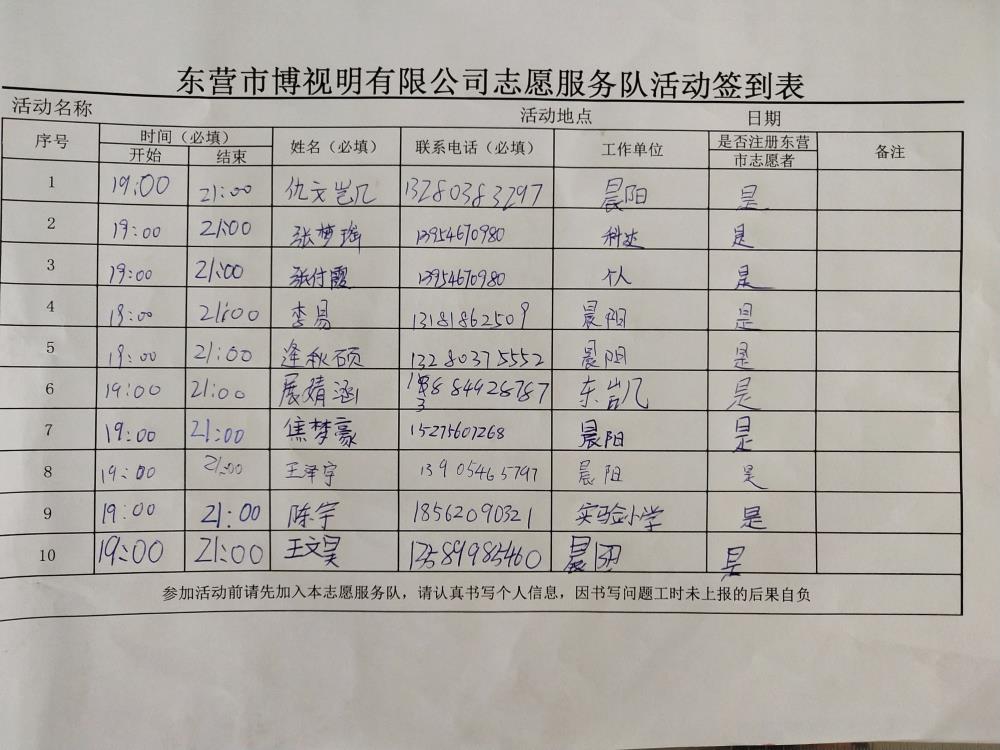 东营市博视明有限公司志愿服务队活动签到表
活动名称 活动地点 日期
序号 时间（必填） 姓名（必填） 联系电话（必填） 工作单位 是否注册东营市志愿者 备注
开始 结束
1 19:00 21:00 仇文岂几 13280383297 晨阳 是
2 19:00 21:00 张梦瑶 13954670980 科达 是
3 19:00 21:00 张付霞 13954670980 个人 是
4 19:00 21:00 李易 13181862509 晨阳 是
5 19:00 21:00 逄秋硕 13280375552 晨阳 是
6 19:00 21:00 展婧涵 84928787 东凯 是
7 19:00 21:00 焦梦豪 15275607268 晨阳 是
8 19:00 21:00 王泽宇 13905465797 晨阳 是
9 19:00 21:00 陈宇 18562090321 实验小学 是
10 19:00 21:00 王文昊 13589985460 晨阳 是
参加活动前请先加入本志愿服务队，请认真书写个人信息，因书写问题工时未上报的后果自负